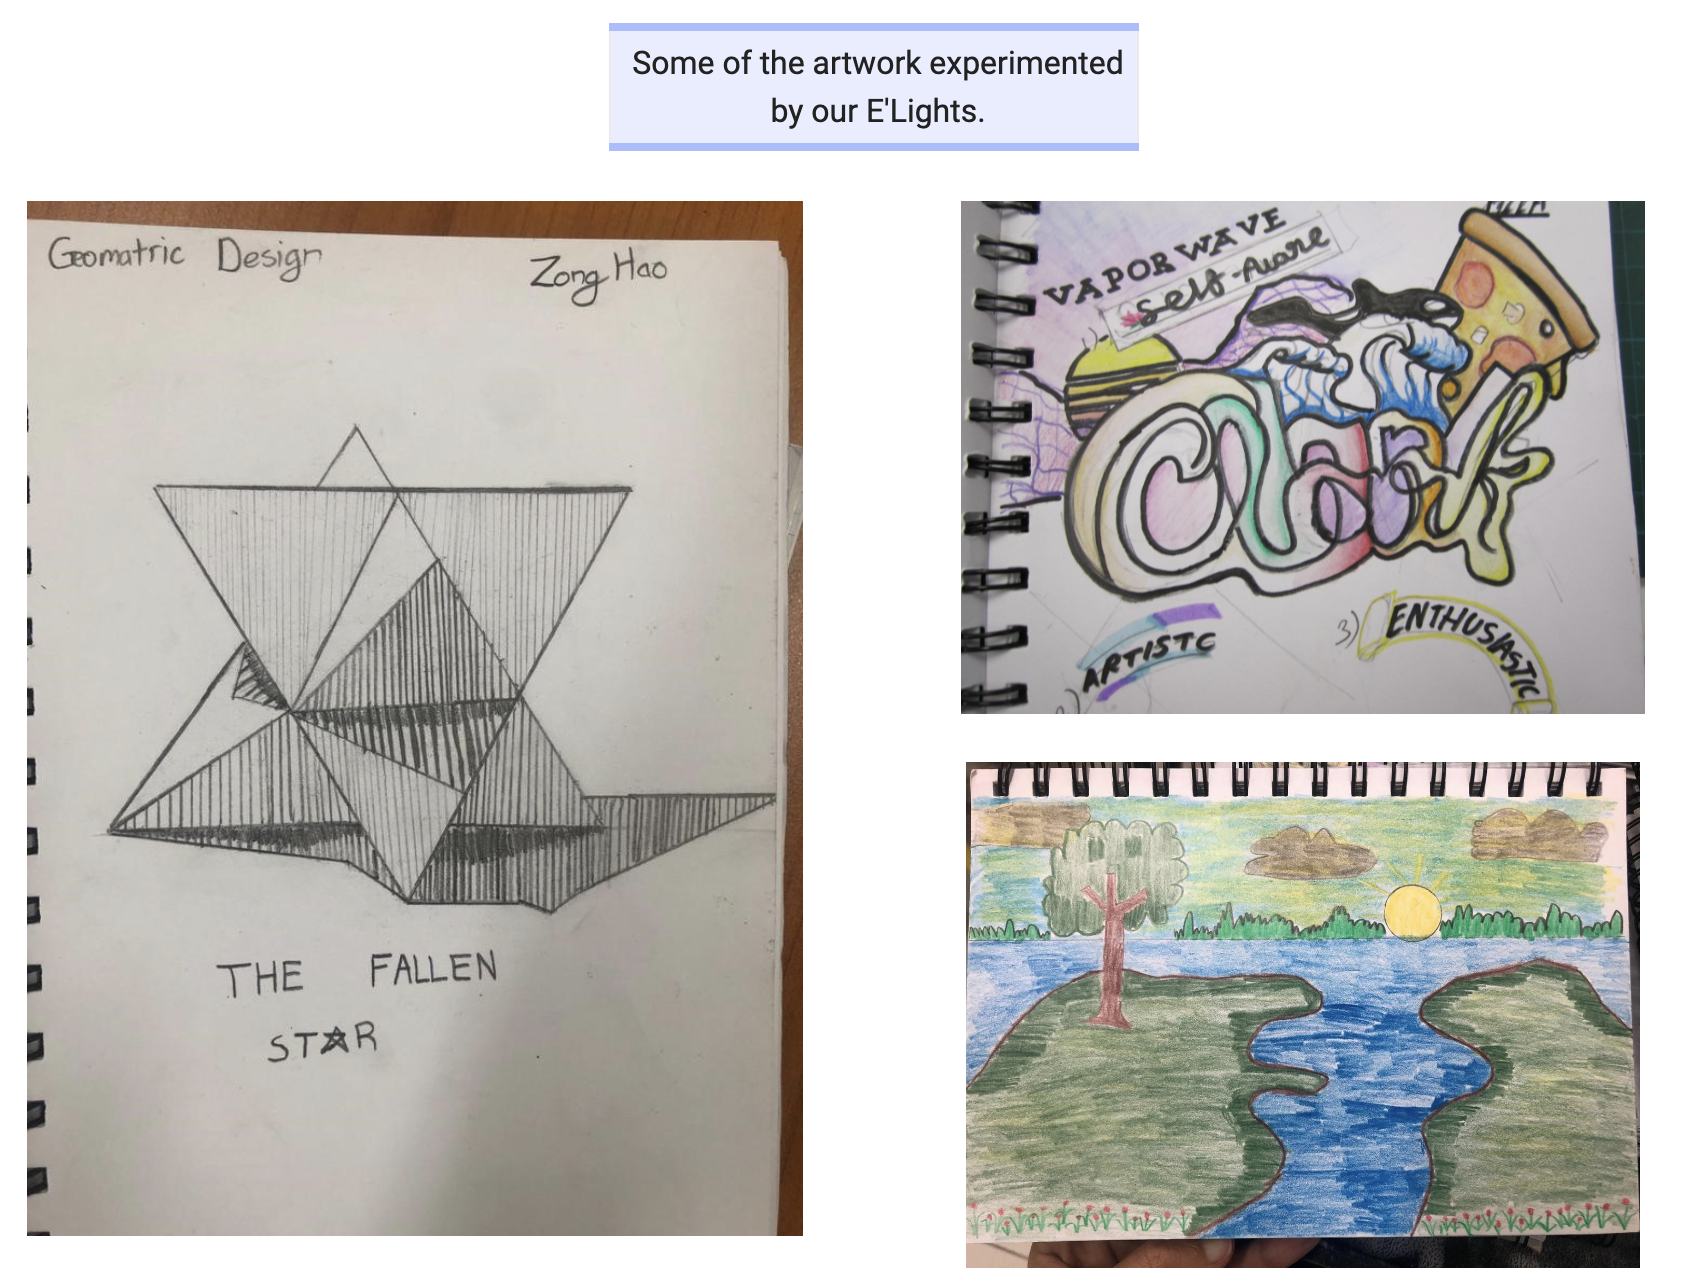 Some of the artwork experimented
by our E'Lights.
Geomatric Design
Zong Hao
THE FALLEN
STAR
VAPORWAVE
self-Aware
Clark
ARTISTC
3) ENTHUSIASTIC